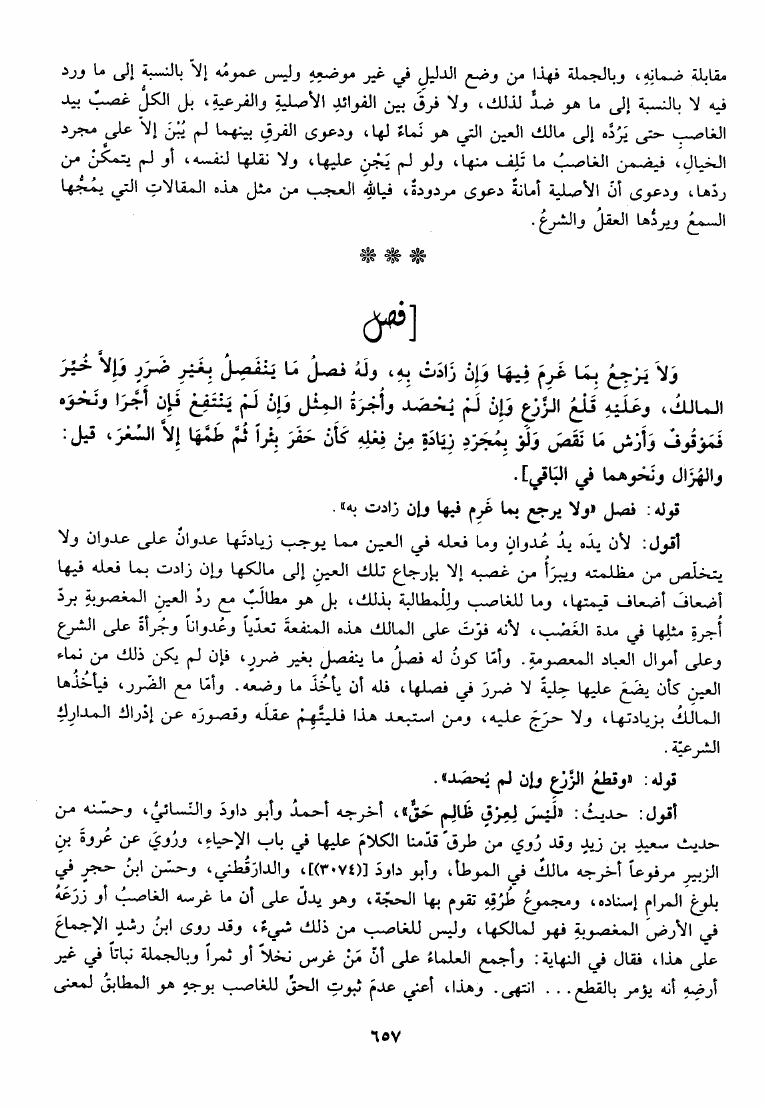 مقابلة ضمانِهِ، وبالجملة فهذا من وضع الدليلِ في غير موضعِهِ وليس عمومُه إلاّ بالنسبة إلى ما ورد
فيه لا بالنسبة إلى ما هو ضدٌّ لذلك، ولا فرقَ بين الفوائدِ الأصليةِ والفرعيةِ، بل الكلُّ غصبٌ بيد
الغاصبِ حتى يَرُدَّه إلى مالك العين التي هو نَماءٌ لها، ودعوى الفرقِ بينهما لم يُبْنَ إلاَّ على مجرد
الخيالِ، فيضمن الغاصبُ ما تَلِف منها، ولو لم يَجْنِ عليها، ولا نقلها لنفسه، أو لم يتمكَّنْ من
ردّها، ودعوى أنَّ الأصلية أمانةٌ دعوى مردودةٌ، فياللّه العجب من مثل هذه المقالاتِ التي يمُجُّها
السمعُ ويردُّها العقلُ والشرعُ.
❊ ❊ ❊
[فصل
وَلاَ يَرْجِعُ بِمَا غَرِمَ فِيهَا وَإِنْ زَادَتْ بِهِ، ولَهُ فصلُ مَا يَنْفَصِلُ بِغَيْرِ ضَرَرٍ وَإِلاَّ خُيِّرَ
المالكُ، وعَلَيْهِ قَلْعُ الزَّرْعِ وَإِنْ لَمْ يُحْصَد وأُجرَةُ المِثْل وَإِنْ لَمْ يَنْتَفِعْ فَإِن أَجَّرَا ونَحْوَه
فَمَوْقُوفٌ وَأَرْش مَا نَقَصَ وَلَوْ بِمُجَرَدِ زِيَادَةٍ مِنْ فِعْلِهِ كَأَن حَفَرَ بِئْراً ثُمَّ طَمَّهَا إِلاَّ السِّعْرَ، قيل:
والهُزَال ونَحْوهما في البَاقي].
قوله: فصل «ولا يرجع بما غَرِم فيها وإن زادت به».
أقول: لأن يدَه يدُ عُدوانٍ وما فعله في العين مما يوجب زيادتَها عدوانٌ على عدوان ولا
يتخلّص من مظلمته ويبرَأُ من غصبه إلا بإرجاع تلك العينِ إلى مالكها وإن زادت بما فعله فيها
أضعافَ أضعاف قيمتها، وما للغاصب وللْمطالبة بذلك، بل هو مطالَبٌ مع ردِّ العينِ المغصوبةِ بردّ
أُجرةِ مثلِها في مدة الغَصْب، لأنه فوّتَ على المالك هذه المنفعةَ تعدّياً وعُدواناً وجُرأةً على الشرع
وعلى أموال العباد المعصومةِ. وأمّا كونُ له فصلُ ما ينفصل بغير ضررٍ، فإن لم يكن ذلك من نماء
العينِ كأن يضَعَ عليها حِليةً لا ضررَ في فصلها، فله أن يأخُذَ ما وضعه. وأمّا مع الضّرر، فيأخُذُها
المالكُ بزيادتها، ولا حرَجَ عليه، ومن استبعد هذا فليتَّهِمْ عقلَه وقصورَه عن إدْراك المدارِكِ
الشرعيّة.
قوله: «وقطعُ الزَّرْعِ وإن لم يُحصَد».
أقول: حديثُ: «لَيْسَ لِعِرْقٍ ظَالِمٍ حَقٌّ»، أخرجه أحمدُ وأبو داودَ والنّسائيُّ، وحسّنه من
حديث سعيدِ بن زيدٍ وقد رُوي من طرق قدّمنا الكلامَ عليها في باب الإحياءِ، ورُوِيَ عن عُروةَ بنِ
الزبيرِ مرفوعاً أخرجه مالكٌ في الموطأ، وأبو داودَ [(٣٠٧٤)]، والدارَقُطني، وحسّن ابنُ حجرٍ في
بلوغ المرامِ إسنادَه، ومجموعُ طُرُقِهِ تقوم بها الحجّة، وهو يدلّ على أن ما غرسه الغاصبُ أو زرَعَهُ
في الأرضِ المغصوبةِ فهو لمالكها، وليس للغاصب من ذلك شيءٌ، وقد روى ابنُ رشدٍ الإجماعَ
على هذا، فقال في النهاية: وأجمع العلماءُ على أنّ مَنْ غرس نخلاً أو ثمراً وبالجملة نباتاً في غير
أرضِهِ أنه يؤمر بالقطع... انتهى. وهذا، أعني عدمَ ثبوتِ الحقِّ للغاصب بوجهٍ هو المطابقُ لمعنى
٦٥٧